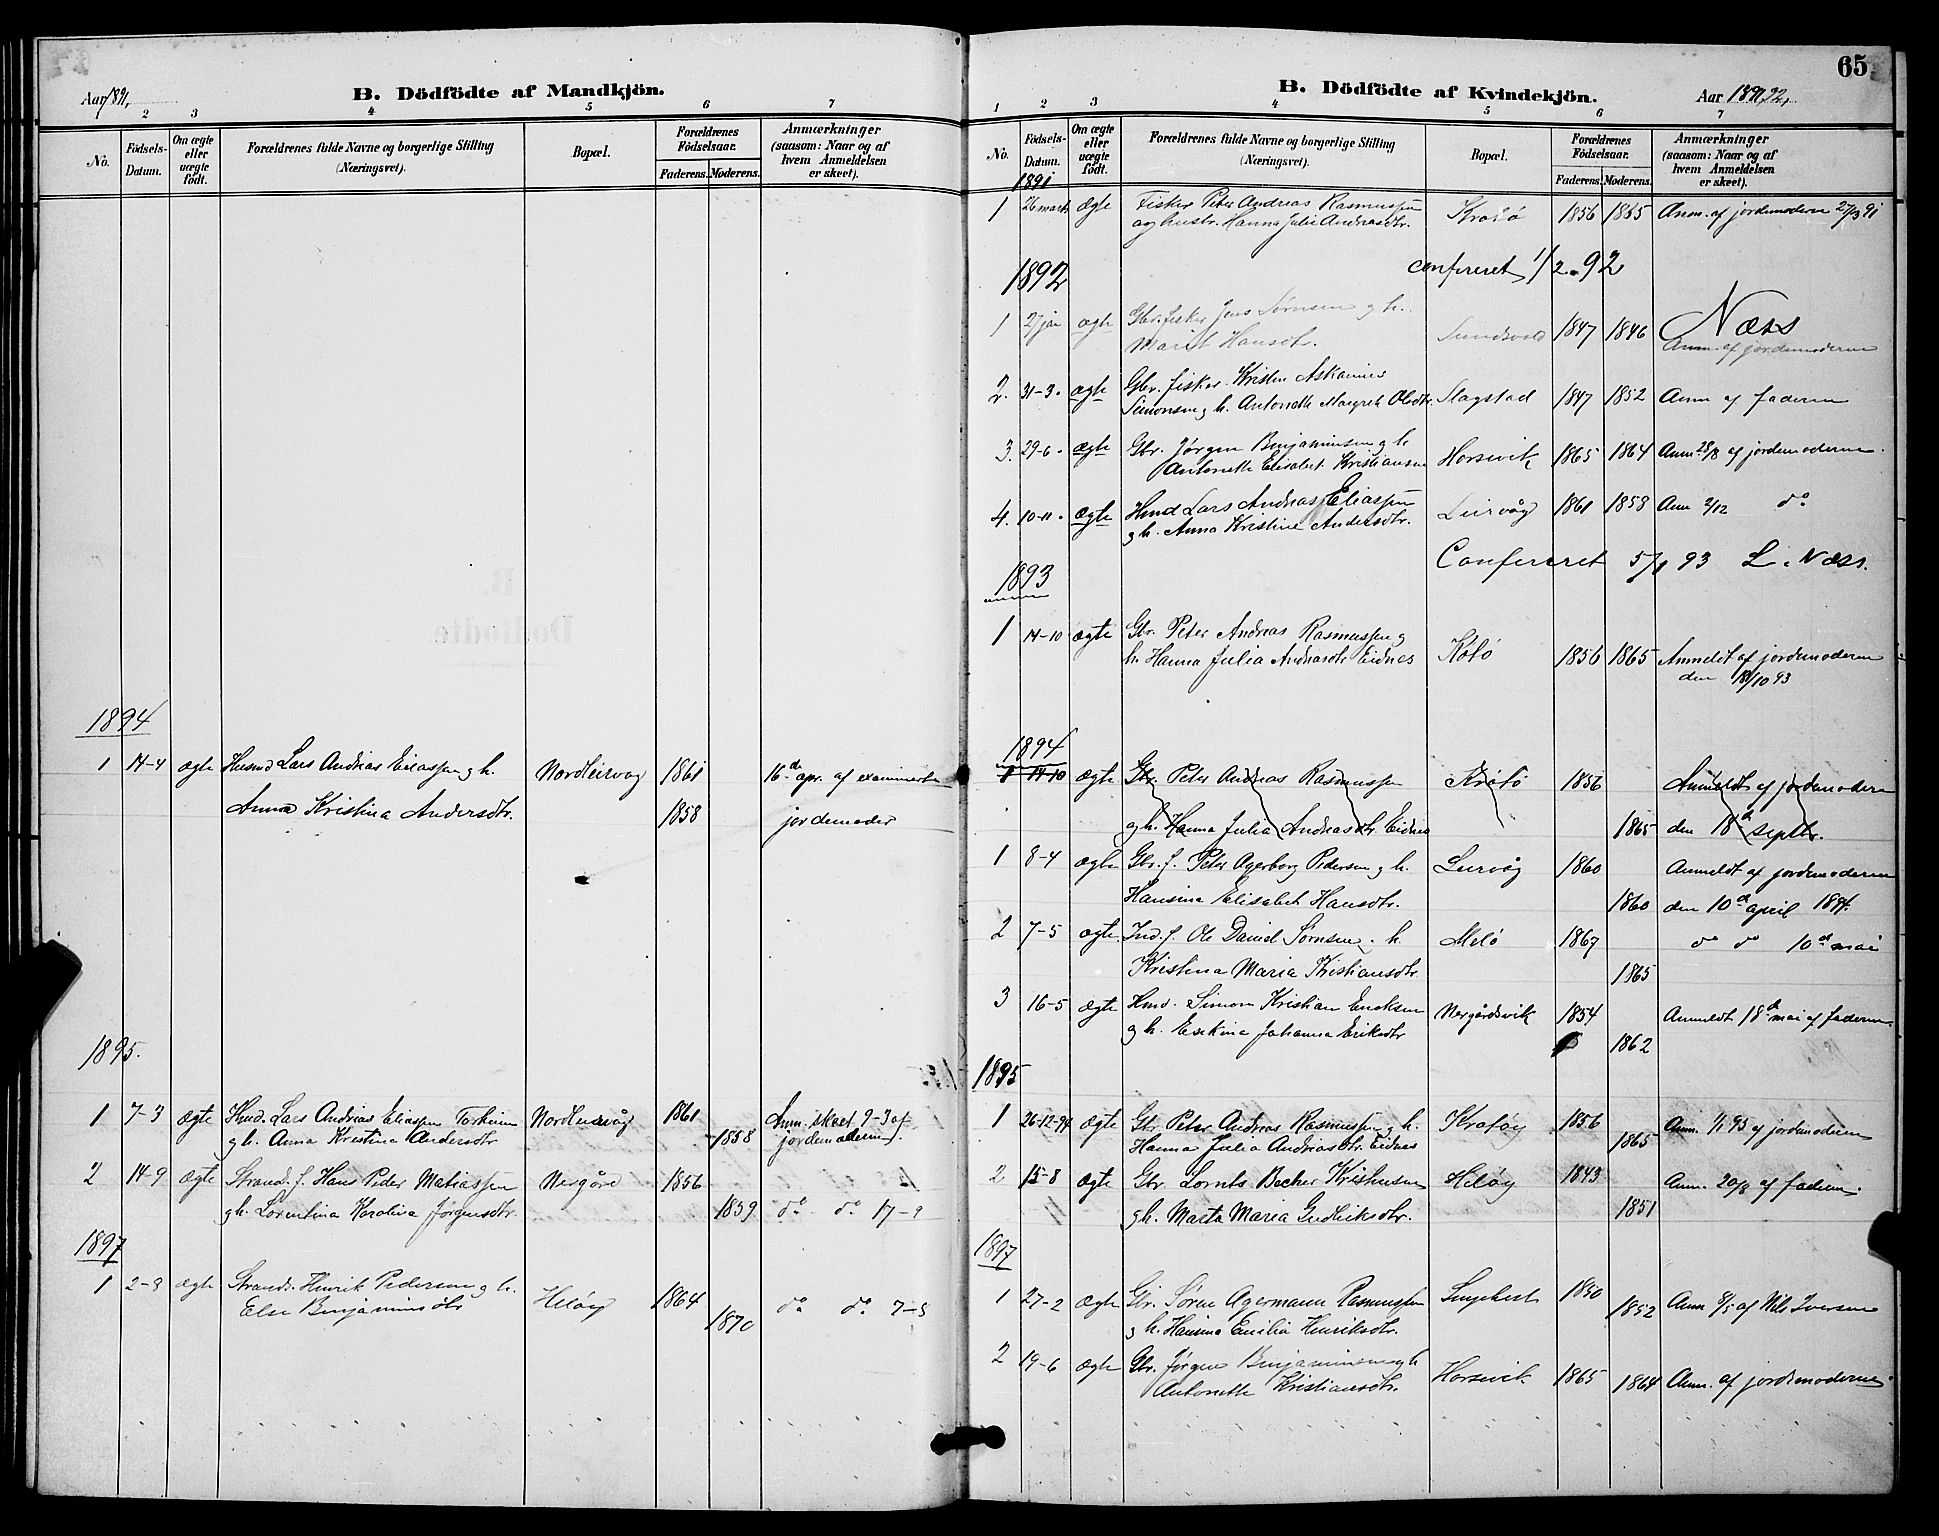 Aar 1891,
B. Dödfödte af Mandkjön.
2 3 4 5 6 7
No.
Födsels-
Datum.
Om ægte
eller
uægte
födt.
Forældrenes fulde Navne og borgerlige Stilling
(Næringsvei).
Bopæl.
Forældrenes
Födselsaar.
Faderens. Moderens.
Anmærkninger
(saasom: Naar og af
hvem Anmeldelsen
er skeet).
1894
1 14-4 ægte Husmd Lars Andreas Eliassen g h. Nordleirvag 1861 16d apr. af examineret
Anna Kristina Andersdtr. 1858 jordemoder
1895.
1 7-3 ægte Hmd. Lars Andreas Eliassen 1861 Anm. skeet 9-3 af
g h. Anna Kristina Andersdtr 1858 jordemoderen.
2 14-9 ægte Strand. f. Hans Peder Matiassen Nergård 1856
g h. Lorentina Karolina Jørgensdtr. 1859 do do 17-9
1897
1 ægte Strands. Henrik Pedersen g h. Heløy 1864
Else Benjaminsdtr 1870 do do
65
B. Dödfödte af Kvindekjön.
Aar 1891,92,
1 2 3 4 5 6 7
No.
Födsels-
Datum.
Om ægte
eller
uægte
födt.
Forældrenes fulde Navne og borgerlige Stilling
(Næringsvei).
Bopæl.
Forældrenes
Födselsaar.
Faderens. Moderens.
Anmærkninger
(saasom: Naar og af
hvem Anmeldelsen
er skeet).
1891
1 26 marts ægte Fisker Peter Andreas Rasmussen 1856 1865 Anm. af jordemoderen 27/3 91
og hustr. Hanna Julie Andreasdtr.
1892 confereret 1/2 92
Næss
1 27 jan ægte Gbr. fisker Jens Sørensen g h. 1847 1846
Marit Hansdtr. Anm. af jordemoderen
2. 31-3. ægte Gbr. fisker. Kristen Askanies
Simonsen g h. Antonette Margrete Olsdtr. Slagstad 1847 1852 Anm af faderen
3. 29-6. ægte Gbr. Jørgen Benjaminsen g h
Antonette Elisabet Kristiansen Horsevik 1865 1864 Anm 28/8 af jordemoderen.
4. 10-11. ægte Hmd Lars Andreas Eliassen Leirvåg 1861 1858 Anm 2/12 do
g h. Anna Kristine Andersdtr.
Confereret 5/1 93 L. Næss.
1893
1 14-10 ægte Gbr. Peter Andreas Rasmussen g
h. Hanna Julia Andreasdtr Eidnes 1856 1865 Anmeldt af jordemoderen
den 18/10 93
1894
1 14-10 ægte Gbr. Peter Andreas Rasmussen 1856 Anmeldt af jordemodern
g h. Hanna Julia Andreasdtr. Eidnes 1865 den 18d septbr.
1 8-4 ægte Gbr. f. Peter Agerborg Pedersen g h. Leirvåg 1860 Anmeldt af jordemoderen
Hansina Elisabet Hansdtr. 1860 den 10d april 1894.
2 7-5 ægte Ind. f. Ole Daniel Sørnsen. h. Melö 1867 do do 10d mai
Kristina Maria Kristiansdtr. 1865
3 16-5 ægte Hmd. Simon Kristian Eriksen Nergårdsvik 1854 Anmeldt 18d mai af faderen.
g h. Esekina Johanna Eriksdtr 1862
1895
1 26-12-94 ægte Gbr Peter Andreas Rasmussen g h. 1856
Hanna Julia Andreasdtr. Eidnes 1865 Anm. 1/1 95 af jordemoderen
2 15-8 ægte Gbr Lornts Becher Kristensen Heløy 1843 Anm. 20/8 af faderen.
g h. Marta Maria 1851
1897
1 27-2 ægte Gbr. Søren Agermann Rasmussen 1850
g h. Hansina Emilia Henriksdtr. 1852 Anm 8/5 af Nils Iversen
2 19-6 ægte Gbr. Jørgen Benjaminsen g h Horsevik 1865 1864 Anm. af jordemoderen
Antonette Kristiansdtr.